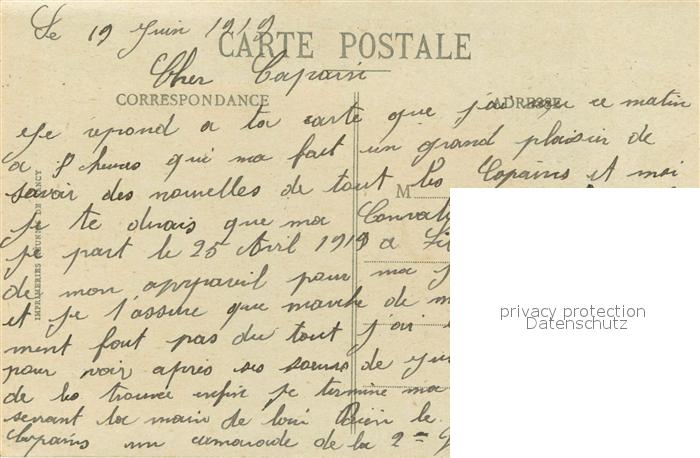 Le 19 Juin 1919
CARTE POSTALE
Cher Copain
CORRESPONDANCE
ADRESSE
Je repond a ta carte que j'ai reçu ce matin
a 8 heures qui ma fait un grand plaisir de
savoir des nouvelles de tout les Copains et moi
M
je te dirais que ma
je part le 25 Avril 1919 a
de mon appareil pour ma
et je t'assure que marche de
ment fout pas du tout j'ai
pour voir après ses soeurs de
de les trouve enfin je termine ma
serrant la main de loin Bien le
Copains un camarade de la 2me
IMPRIMERIES REUNIES DE NANCY
privacy protection
Datenschutz